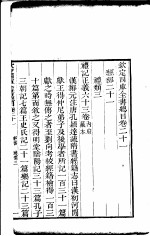 欽定四庫全書總目卷二十一
經部二十一
禮類三
禮記正義六十三卷內府藏本
漢鄭元注唐孔穎達疏隋書經籍志曰漢初河間
獻王得仲尼弟子及後學者所記一百三十一篇
獻之時無傳之者至劉向考校經籍檢得一百三
十篇第而敘之又得明堂陰陽記三十三篇孔子
三朝記七篇王史氏記二十一篇樂記二十三篇